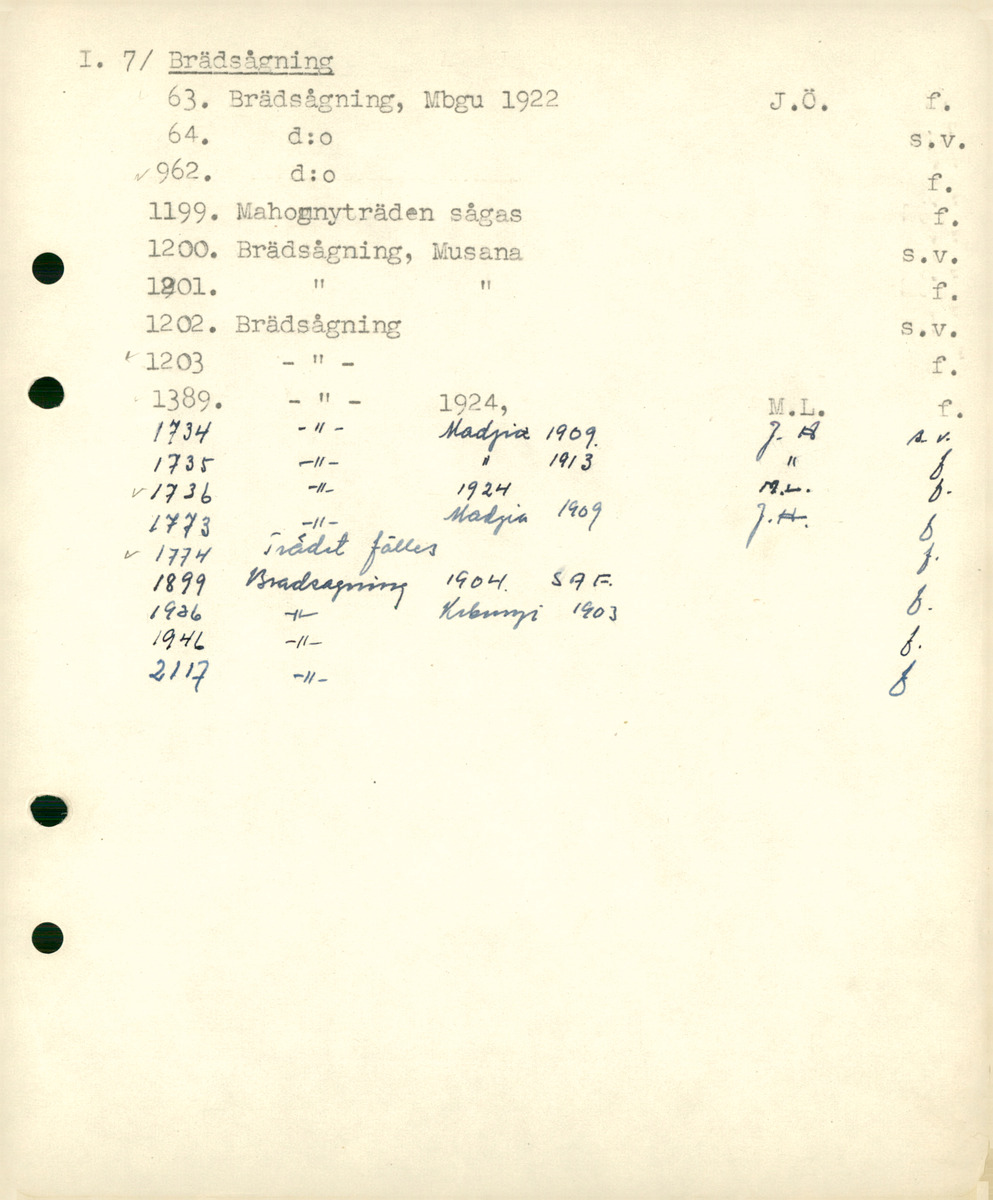 I. 7/ Brädsågning
63. Brädsågning, Mbgu 1922 J.Ö. f.
64. d:o s.v.
✓962. d:o f.
1199. Mahognyträden sågas f.
1200. Brädsågning, Musana s.v.
1201. " " f.
1202. Brädsågning s.v.
✓1203 - " - f.
1389. - " - 1924, M.L. f.
1734 -"- Madzia 1909. J. H s.v.
1735 -"- " 1913 " f
✓1736 -"- 1924 M.L. f.
1773 -"- Madzia 1909 J.H. f
✓1774 Trädet fälles f.
1899 Brädsågning 1904. S A F. f.
1926 -"- Kibunzi 1903
1946 -"- f.
2117 -"- f